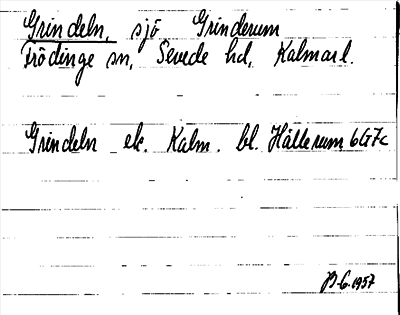 Grindeln, sjö Grinderum
Frödinge sn, Sevede hd, Kalmar l.
Grindeln ek. Kalm. bl. Hällerum 6G7c
1957